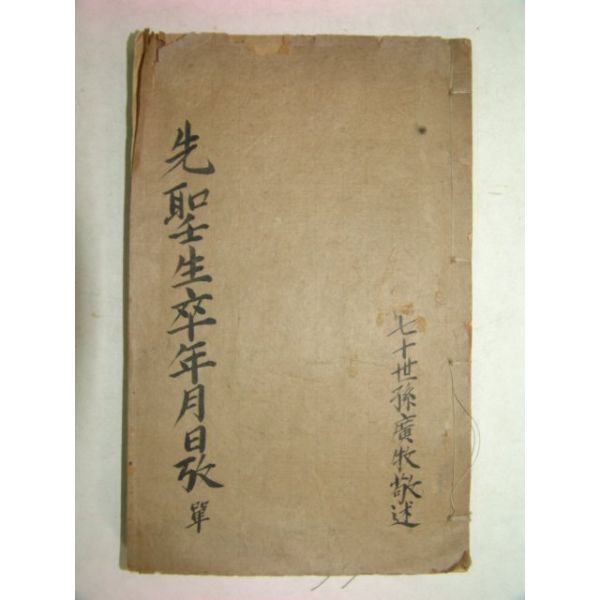 先聖生卒年月日攷 單
七十世孫廣牧敬述